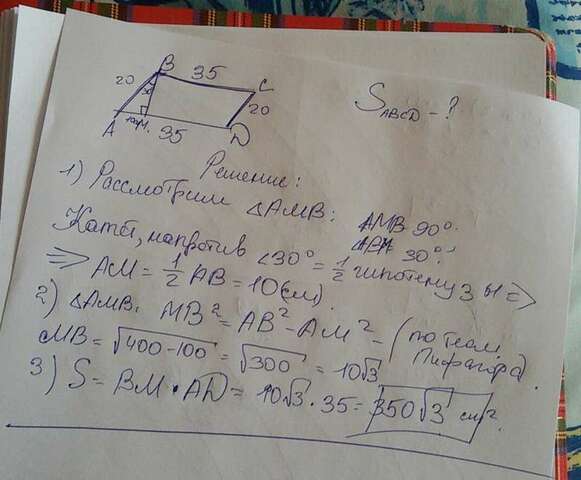 B
35
C
20
30
20
A
10см.
M
35
D
S ABCD - ?
Решение:
1) Рассмотрим △AMB: AMB 90°.
Катет, напротив <30° = 1/2 гипотенузы =>
30°
=> AM = 1/2 AB = 10(см)
2) △AMB: MB² = AB² - AM² - (по теом. Пифагора).
MB = √400-100 = √300 = 10√3
3) S = BM · AD = 10√3 · 35 = 350√3 см².